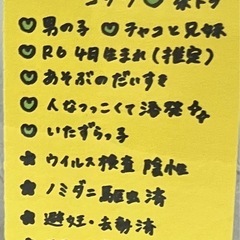 ♥男の子♥チャコと兄妹
♥R6 4月生まれ(推定)
♥あそぶのだいすき
♥人なつっこくて活発
♥いたずらっ子
ウイルス検査 陰性
ノミダニ駆虫済
避妊・去勢済